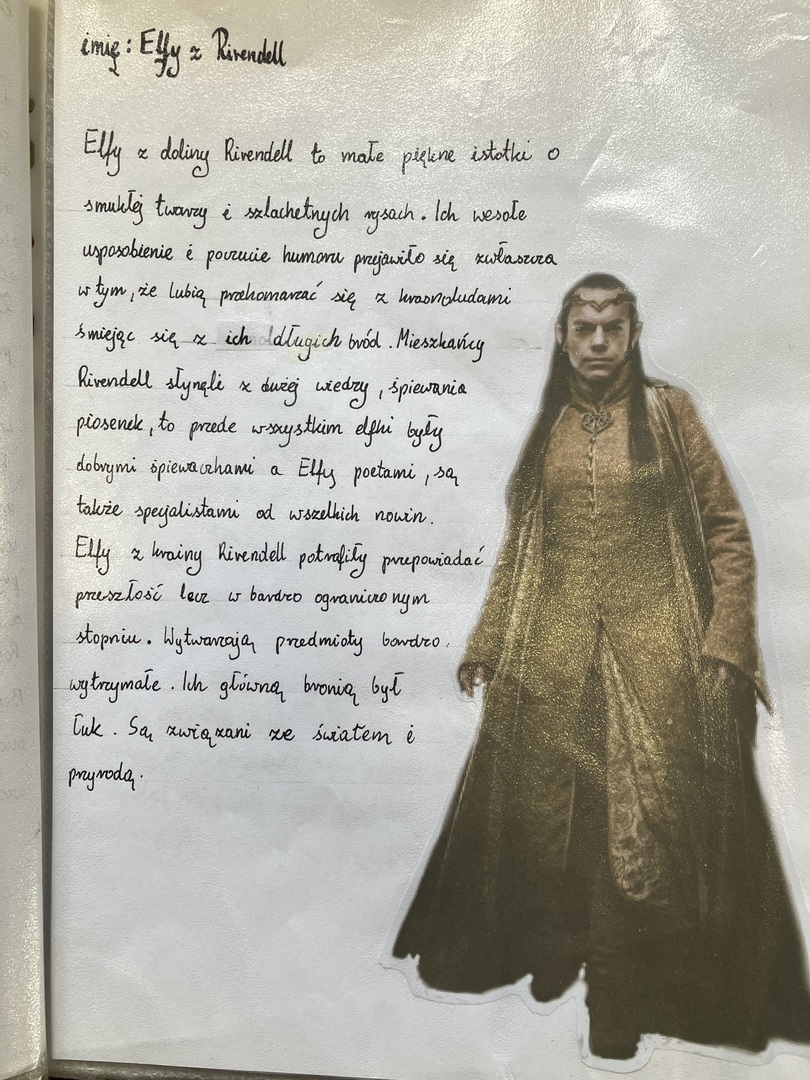 imię: Elfy z Rivendell
Elfy z doliny Rivendell to małe piękne istotki o
smukłej twarzy i szlachetnych rysach. Ich wesołe
usposobienie i poczucie humoru przejawiło się zwłaszcza
w tym, że lubią przekomarzać się z krasnoludami
śmiejąc się z ich długich bród. Mieszkańcy
Rivendell słynęli z dużej wiedzy, śpiewania
piosenek, to przede wszystkim elfki były
dobrymi śpiewaczkami a Elfy poetami, są
także specjalistami od wszelkich nowin.
Elfy z krainy Rivendell potrafiły przepowiadać
przeszłość lecz w bardzo ograniczonym
stopniu. Wytwarzają przedmioty bardzo
wytrzymałe. Ich główną bronią był
łuk. Są związani ze światem i
przyrodą.